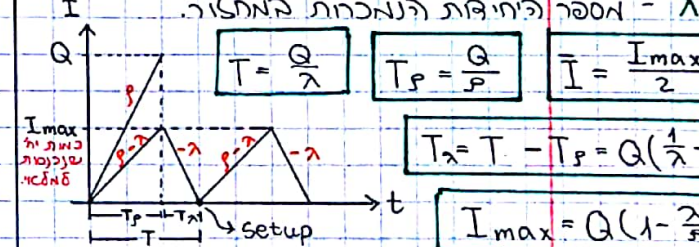 λ - מספר היחידות הנמכרות במחזור.
I
Q
T = Q/λ
Tρ = Q/ρ
Ī = Imax/2
ρ
Imax
כמות יח'
שנכנסות
למלאי.
ρ-λ
-λ
ρ-λ
-λ
Tλ = T - Tρ = Q(1/λ -
t
Tρ Tλ
T
setup
Imax = Q(1-λ/